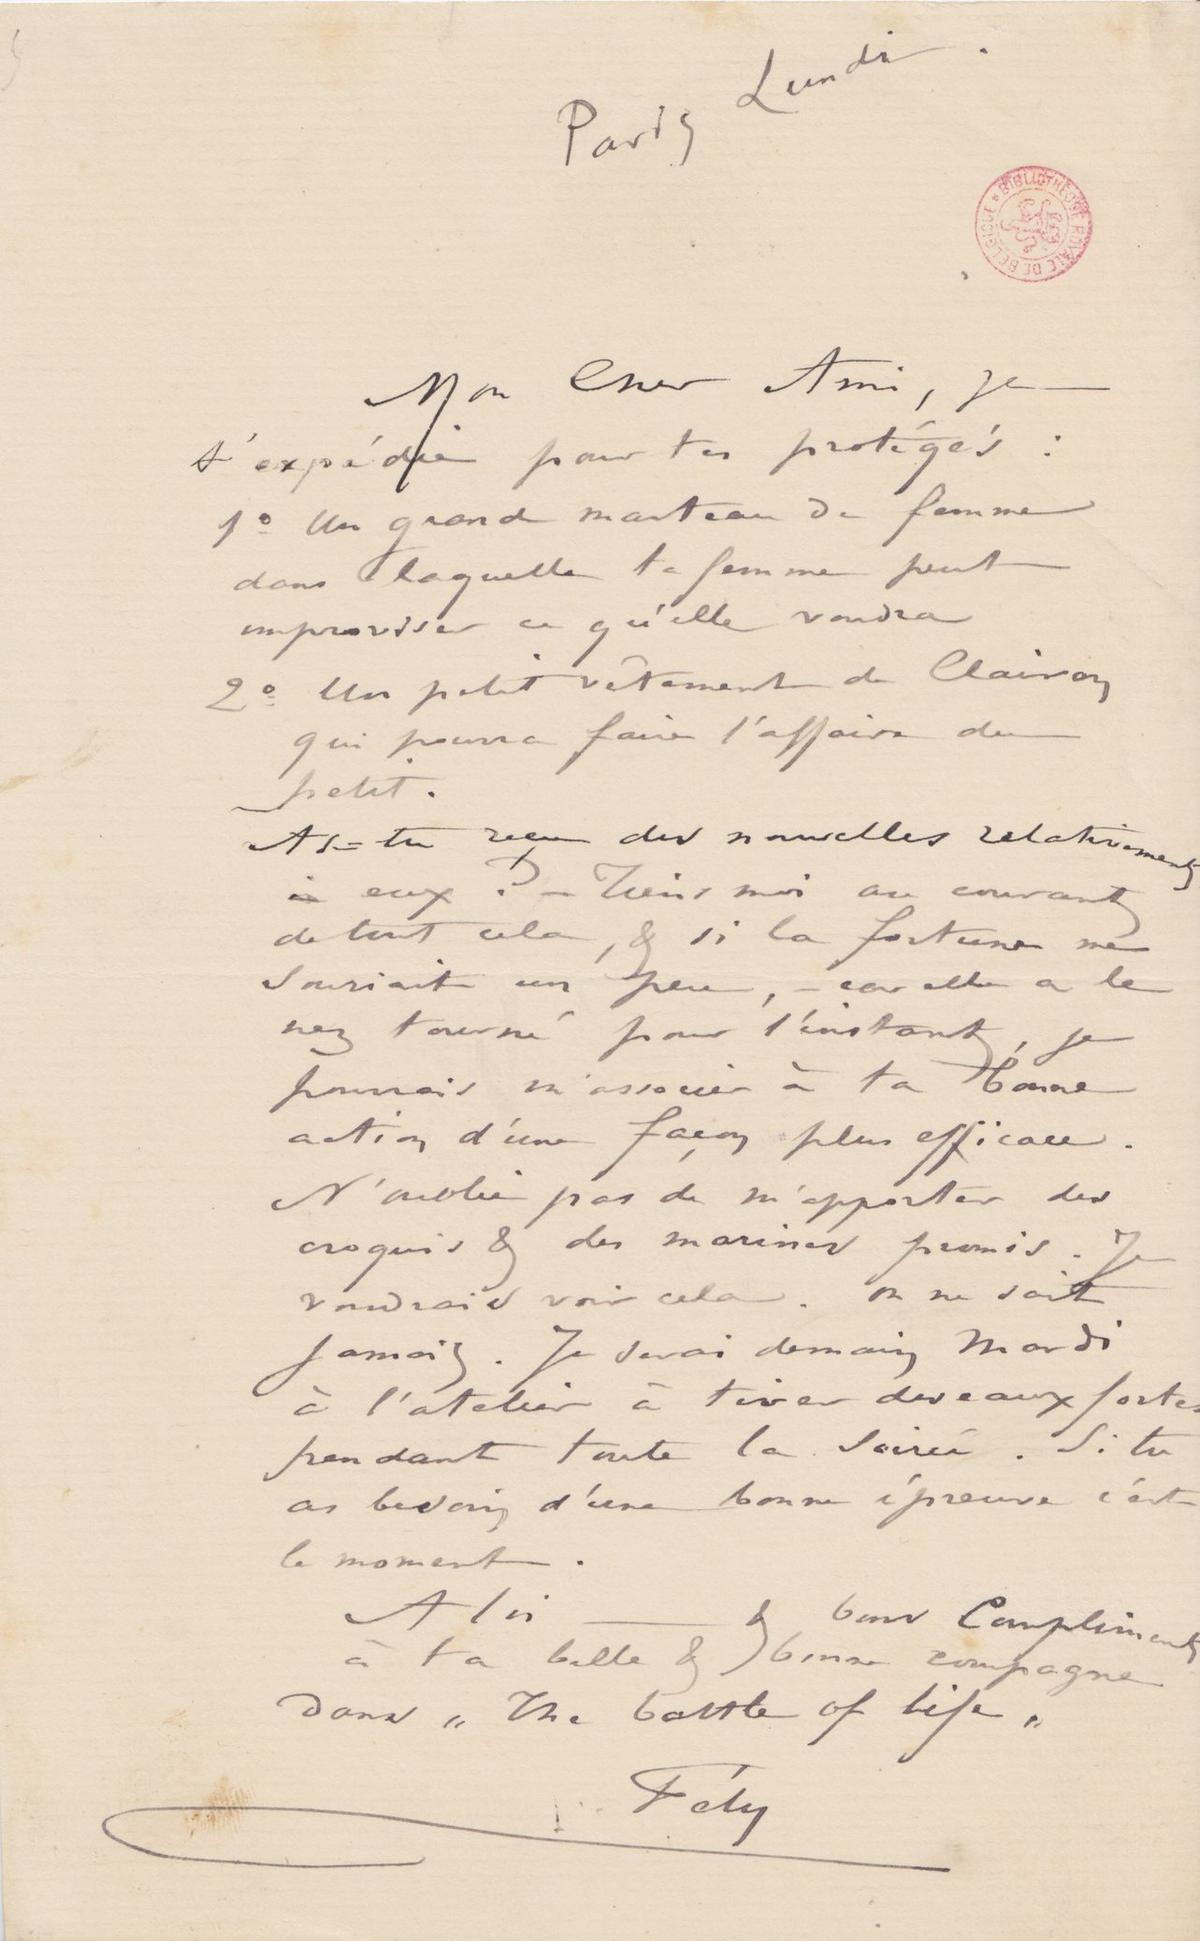 Paris Lundi.
BIBLIOTHÈQUE ROYALE DE BELGIQUE
Mon Cher Ami, je
t'expédie pour tes protégés :
1º Un grand manteau de femme
dans laquelle ta femme peut
improviser ce qu'elle voudra
2º Un petit vêtement de Clairon
qui pourra faire l'affaire du
petit.
As=tu reçu des nouvelles relativement
à eux ? – Tiens moi au courant
de tout cela, & si la fortune me
souriait un peu, – car elle a le
nez tourné pour l'instant, je
pourrais m'associer à ta bonne
action d'une façon plus efficace.
N'oublie pas de m'apporter des
croquis & des marines promis. Je
voudrais voir cela. on ne sait
jamais. Je serai demain Mardi
à l'atelier à tirer des eaux fortes
pendant toute la soirée. Si tu
as besoin d'une bonne épreuve c'est
le moment.
A toi & bons Compliments
à ta belle & bonne compagne
dans „ The battle of life „
Fély